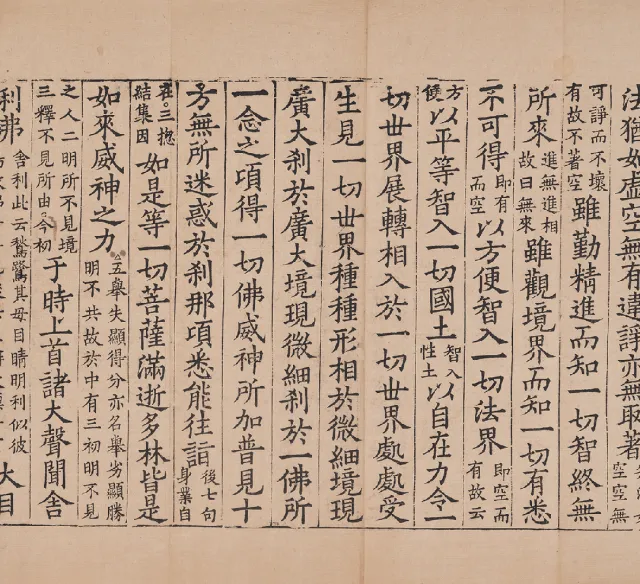 法猶如虛空無有違諍亦無取著空空無
可諍而不壞有故不著空雖勤精進而知一切智終無
所來進無進相故曰無來雖觀境界而知一切有悉
不可得即有而空以方便智入一切法界即空而有故云
方以平等智入一切國土智入性土以自在力令一
切世界展轉相入於一切世界處處受
生見一切世界種種形相於微細境現
廣大剎於廣大境現微細剎於一佛所
一念之頃得一切佛威神所加普見十
方無所迷惑於剎那頃悉能往詣後七句身業自
在。三捴結集因如是等一切菩薩滿逝多林皆是
如來威神之力△五舉失顯得分亦名舉劣顯勝明不共故於中有三初明不見
之人二明所不見境三釋不見所由今初于時上首諸大聲聞舍
利弗舍利此云鶖鷺其母目睛明利似彼大目